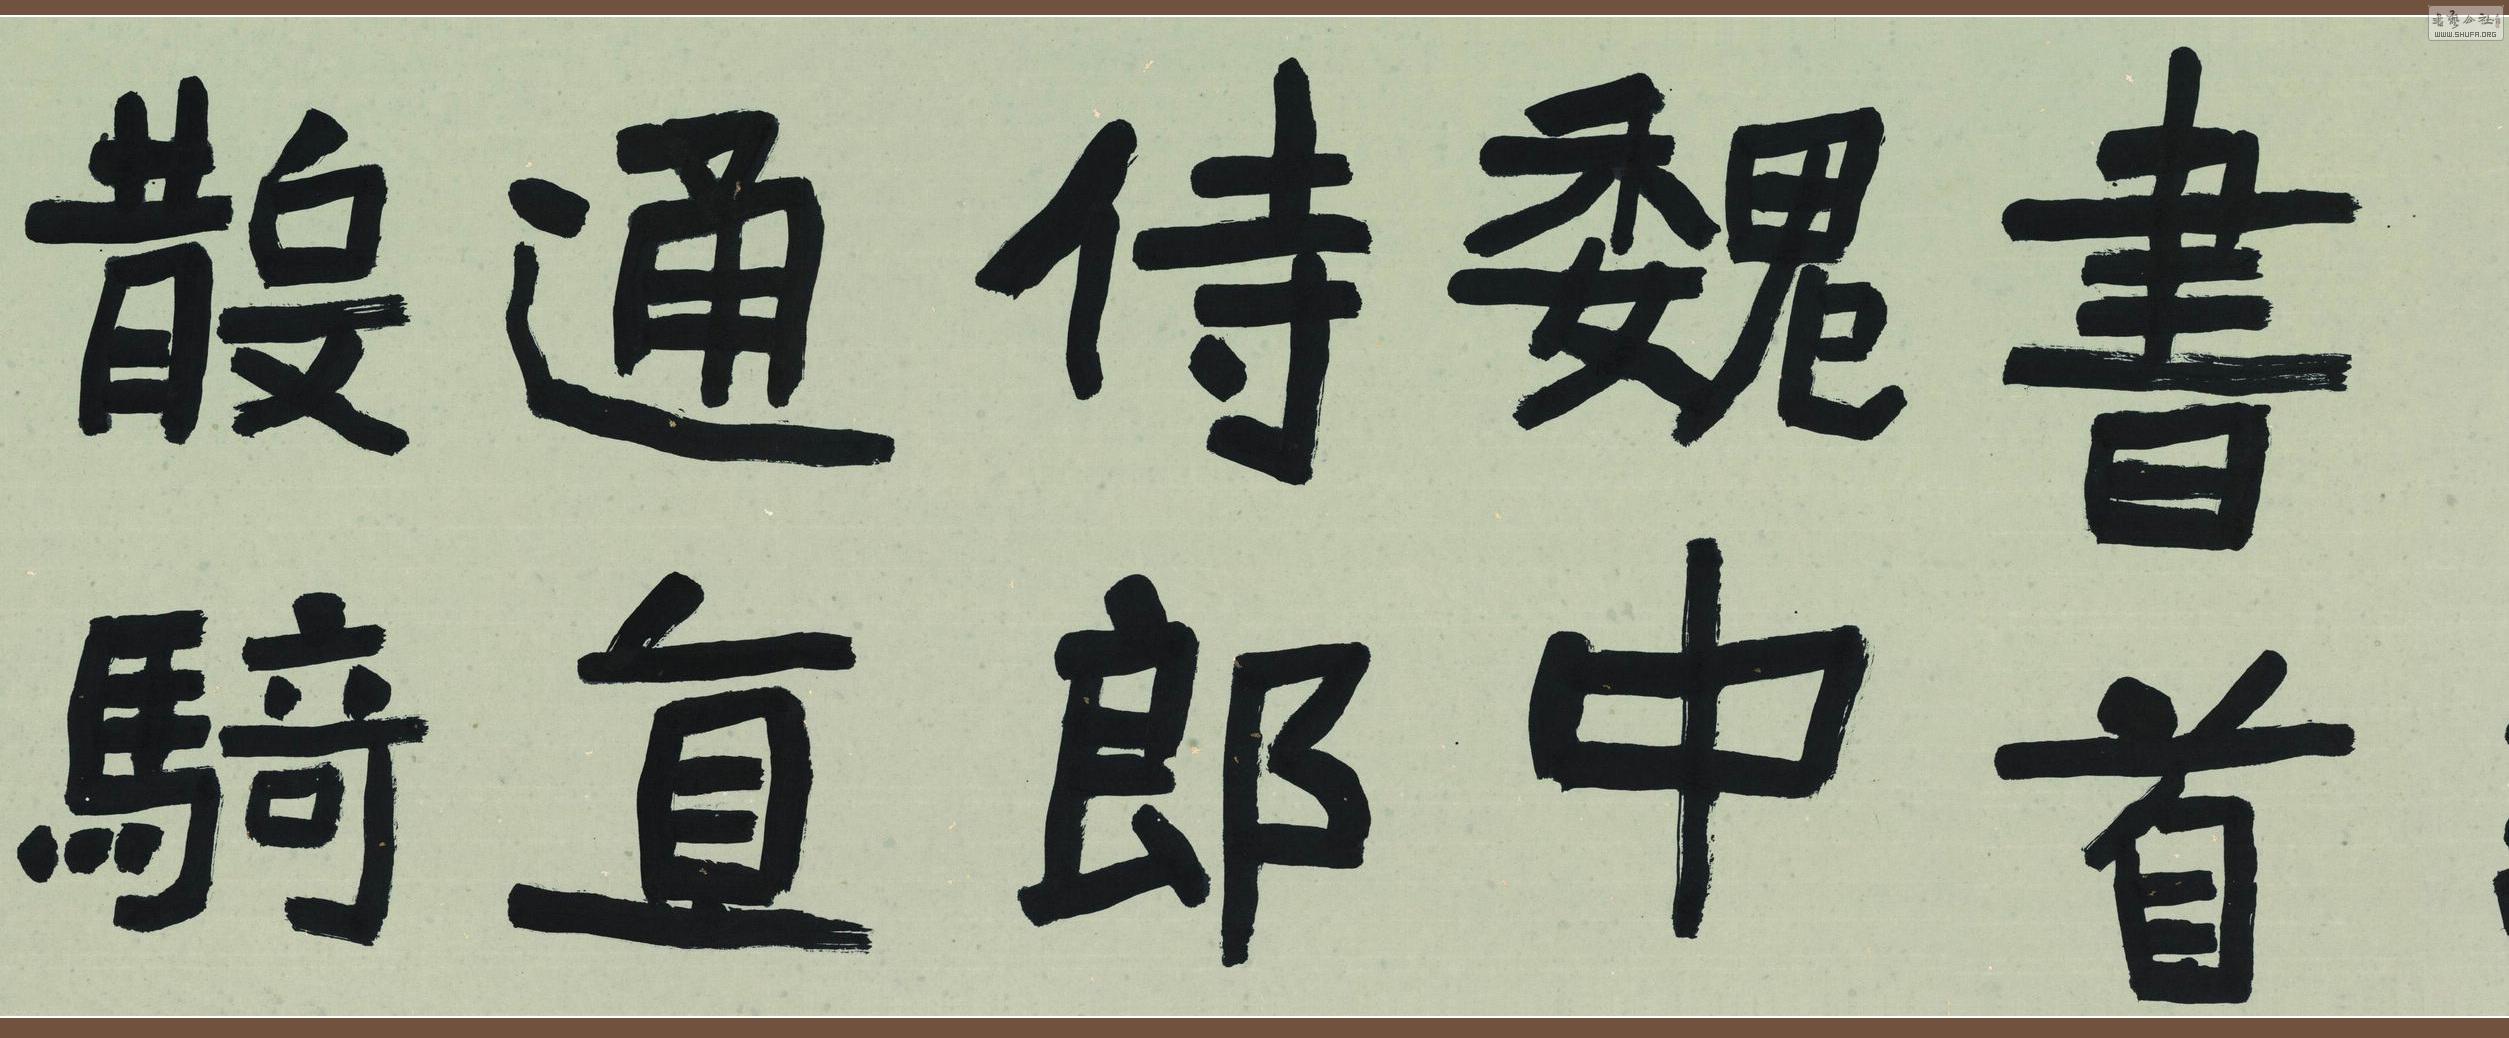 書首
魏中
侍郎
通直
散騎
書藝公社
WWW.SHUFA.ORG